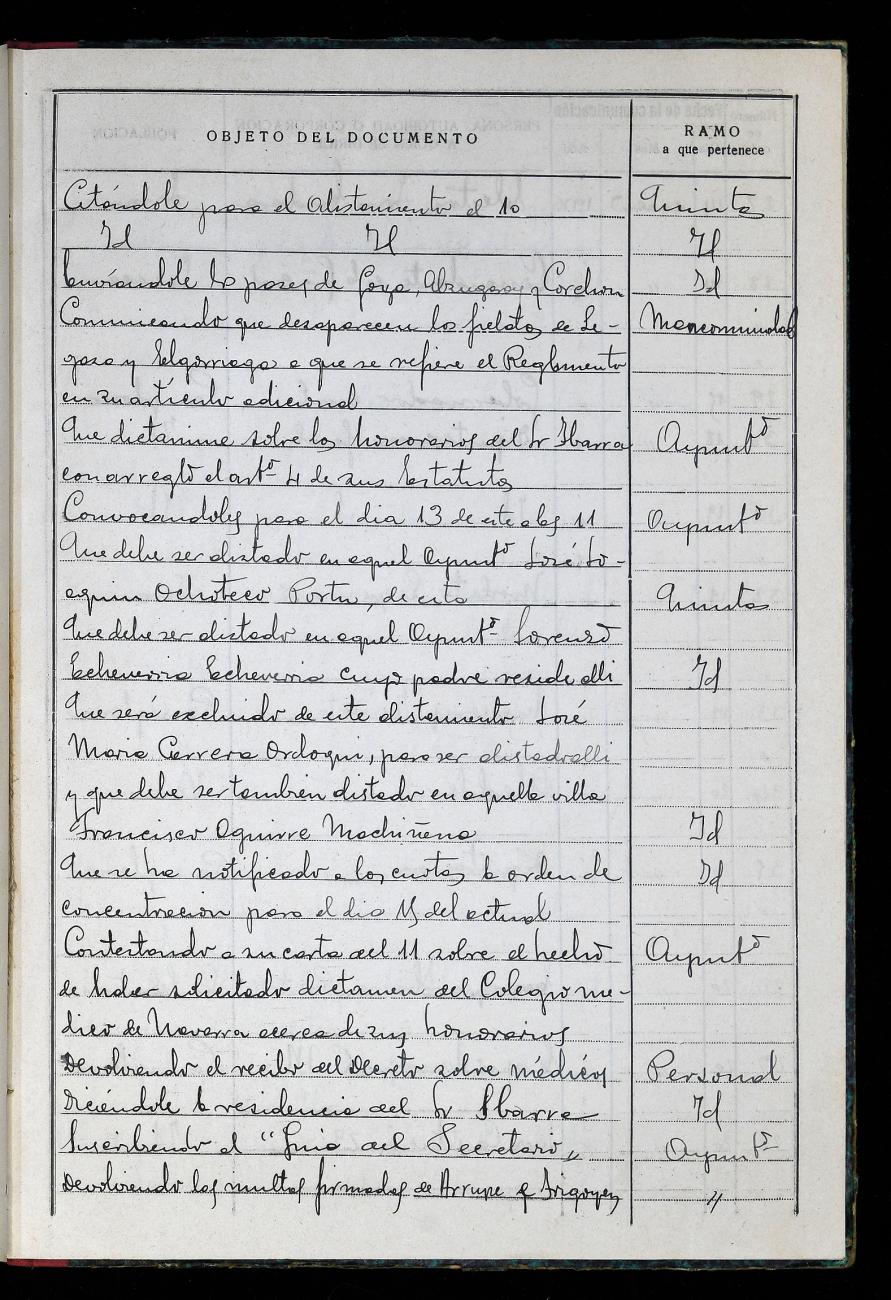 OBJETO DEL DOCUMENTO
RAMO
a que pertenece
Citándole para el alistamiento el 10 Quintas
Id Id Id
Enviándole los pases de Goya, y Corchon Id
Comunicando que desaparecen los fielatos de Le- Mancomunidad
gasa y Elgorriaga a que se refiere el Reglamento
en su artículo adicional
Que dictamine sobre los honorarios del Sr Ibarra Ayuntº
con arreglo al artº 4 de sus Estatutos
Convocandoles para el dia 13 de este a las 11 Ayuntº
Que debe ser alistado en aquel Ayuntº José Jo-
aquin Ochoteco Portu, de esta Quintas
Que debe ser alistado en aquel Ayuntº Lorenzo
Echeverria Echeverria cuyo padre reside alli Id
Que será excluido de este alistamiento José
Maria Carrera Ordoqui, para ser alistado alli
y que debe ser tambien alistado en aquella villa
Francisco Aguirre Machiñena Id
Que se ha notificado a los cuotas la orden de Id
concentracion para el dia del actual
Contestando a su carta del 11 sobre el hecho Ayuntº
de haber solicitado dictamen del Colegio me-
dico de Navarra acerca de sus honorarios
Devolviendo el recibo del Decreto sobre médicos Personal
Diciéndole la residencia del Sr Ibarra Id
Suscribiendo al "Guia del Secretario" Ayuntº
Devolviendo las multas firmadas de Arrupe e Irigoyen "